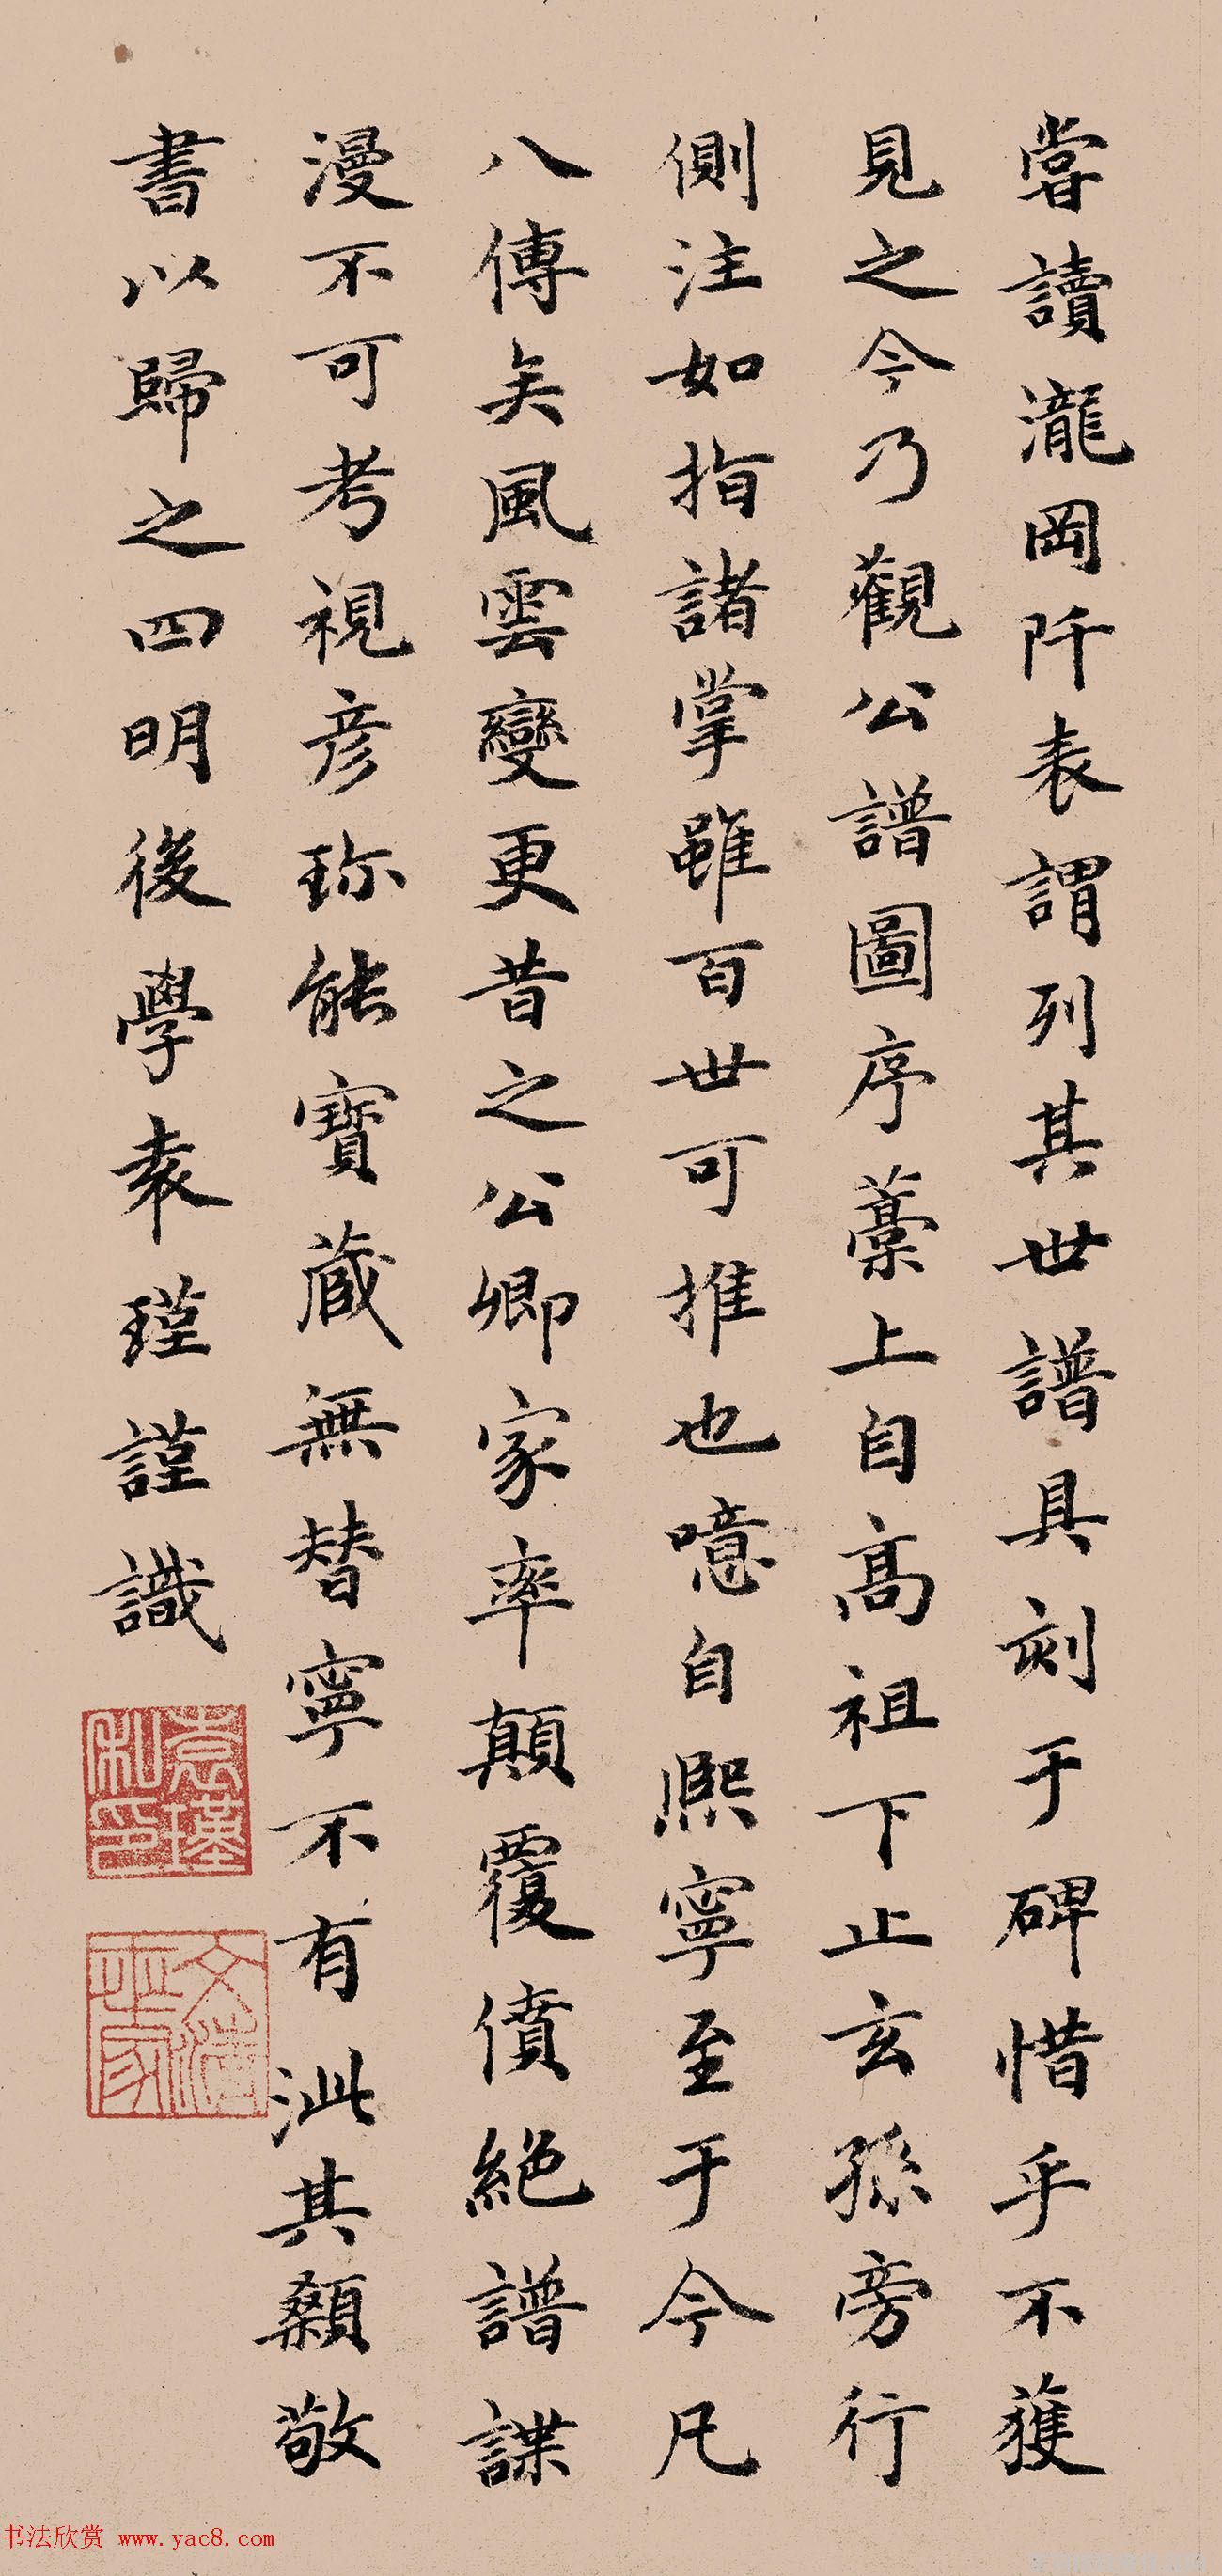 嘗讀瀧岡阡表謂列其世譜具刻于碑惜乎不獲
見之今乃觀公譜圖序藁上自高祖下止玄孫旁行
側注如指諸掌雖百世可推也噫自熈寧至于今凡
八傳矣風雲變更昔之公卿家率顛覆僨絕譜諜
漫不可考視彦珎能寶藏無替寧不有泚其顙敬
書以歸之四明後學袁瑾謹識
袁瑾私印
书法欣赏 www.yac8.com